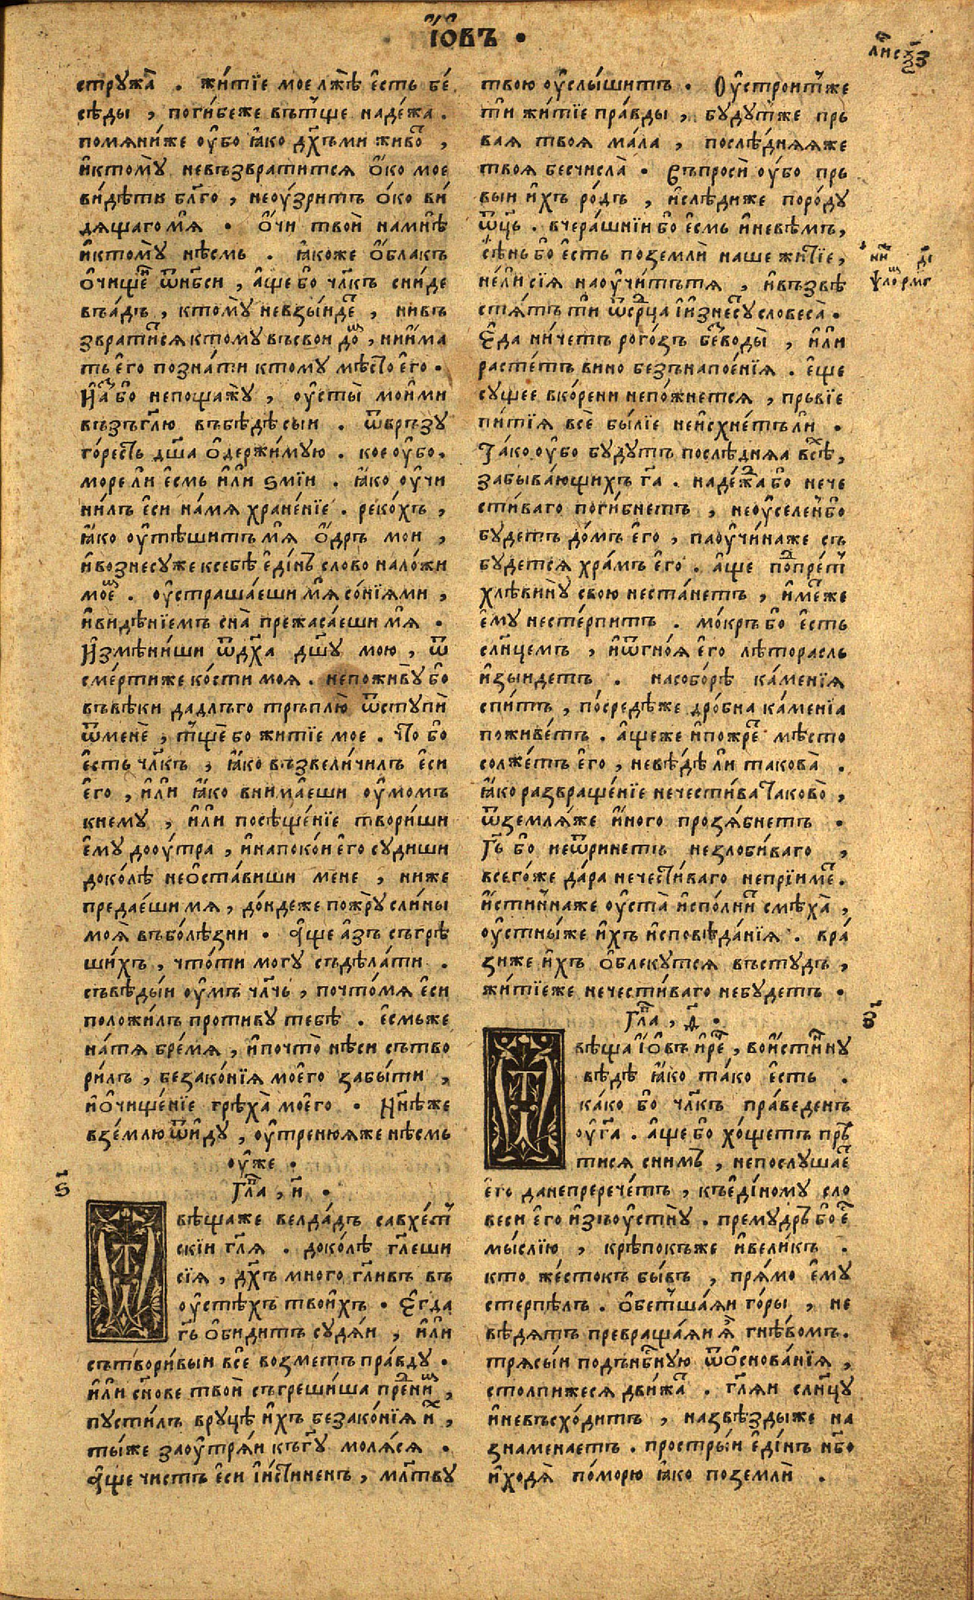 І҆ѡ҆въ .
стружа̀ . житїе мое лжѣ є҆сть бе́
сѣды , погибеже вътще наде́жа .
помяниже оу҆бо ꙗ҆ко дх҃ъми живо̀ ,
и҆ктомꙋ̀ невъзвратится ѻ҆́ко мое
ви́дѣти бл҃го , неоу́зритъ ѻ҆́ко ви́
дящаго мя̀ . ѻ҆́чи твои̑ на мнѣ
и҆ктомꙋ̀ нѣсмь . ꙗ҆коже ѻ҆́блакъ
ѻ҆чище́ ѿнб҃си , а҆ще бо чл҃къ сни́де
въа́дъ , ктомꙋ невзы́иде , нивъ
звратися ктомꙋ въсвои до́ , нии́ма
тъ є҆го̀ позна́ти ктомꙋ мѣсто є҆го .
Но бо непощажꙋ , оу҆сты̀ мои́ми
възъгл҃ю въбѣдѣ сыи . ѿврьзꙋ
го́ресть дш҃а ѻ҆держи́мꙋю . кое оу҆бо .
море ли є҆смь и҆лѝ ѕми́и . ꙗ҆ко оу҆чи
ни́лъ є҆си на́мя хране́нїе . реко́хъ ,
ꙗ҆ко оу҆тѣшитъ мя̀ ѻ҆́дръ мои ,
и҆вознесꙋже ксебѣ є҆ди́нъ слово нало́жи
мое . оу҆страша́еши мя̀ со́нїями ,
и҆видѣнїемъ сна̀ прежаса́еши мя̀ .
И҆змѣни́ши ѿдх҃а дш҃ꙋ мою , ѿ
сме́ртиже ко́сти моя . непоживꙋ бо
въвѣки да́длъго тръплю ѿстꙋпи
ѿменѐ , тще бо житїе мое . Что бо
є҆сть чл҃къ , ꙗ҆ко възвели́чилъ є҆си
є҆го̀ , и҆лѝ ꙗ҆ко внима́еши оу҆момъ
кнемꙋ , и҆лѝ посѣще́нїе твориши
є҆мꙋ дооу́тра , и҆напоко́и є҆го сꙋдиши
доко́лѣ неѻ҆ста́виши мене , ниже
предае́ши мя , до́ндеже пожрꙋ сли́ны
моя̀ въболѣ́зни . А҆ще а҆зъ съгрѣ
ши́хъ , что́ти могꙋ съдѣлати .
съвѣ́дыи оу҆мъ чл҃чь , почто́мя є҆си
положи́лъ противꙋ тебѣ̀ . є҆смьже
на́тя бре́мя , и҆почто̀ нѣси сътво
ри́лъ , безако́нїя мое́го забы́ти ,
и҆ѻ҆чище́нїе грѣха̀ мое́го . Нн҃ѣже
взе́млю ѿидꙋ , оу҆тренюяже нѣсмь
оу҆же .
Гла , и҃ .
ѕ҃
вѣщаже велда́дъ савхе́ит
скїи гл҃я . доко́лѣ гл҃еши
сїя , дх҃ъ много гл҃ивъ въ
оу҆стѣхъ твои́хъ . Е҆гда
гь ѻ҆би́дитъ сꙋдяи , и҆лѝ
сътвори́выи все̑ во́зметъ пра́вдꙋ .
и҆лѝ сн҃ове твои̑ съгрѣши́ша пре́ни ,
пꙋсти́лъ врꙋцѣ и҆́хъ безако́нїя и ,
ты́же заоу҆тряи къгꙋ моля́ся .
А҆ще чистъ є҆си и҆и́стиненъ , мл҃твꙋ
лис рз
твою оу҆слы́шитъ . Оу҆строитже
ти житїе пра́вды , бꙋдꙋтже пръ
вая твоя ма́ла , послѣдняяже
твоя бесчисла̀ . Съпроси оу҆бо пръ
выи и҆́хъ родъ , и҆слѣдиже поро́дꙋ
ѿц҃ь . вчера́шнїи бо є҆смь и҆невѣмъ ,
сѣнь бо є҆сть поземли̑ наше житїе ,
не́ли сїя наоу҆чатътя , и҆възвѣ
стятъ ти ѿсрца и҆изнесꙋ словеса̀ .
Е҆да ни́четъ рого́зъ безводы̀ , и҆лѝ
расте́тъ вино безънапое́нїя . є҆ще
сꙋщее вко́рени непожнется , прьвїе
пи́тїя все бы́лїе неи҆схнетъ ли .
Та́ко оу҆бо бꙋдꙋтъ послѣдняа всѣ ,
забыва́ющихъ га . наде́жа бо нече
сти́ваго поги́бнетъ , неоу҆селен бо
бꙋдетъ до́мъ є҆го , паоу҆чинаже съ
бꙋдется хра́мъ є҆го . а҆ще по́прет
хлѣвинꙋ свою неста́нетъ , и҆мѐже
є҆мꙋ несте́рпитъ . мо́кръ бо є҆сть
слн҃цемъ , и҆ѿгноя̀ є҆го лѣторасль
и҆зы́идетъ . насоборѣ ка́менїя
спитъ , по́средѣже дро́бна ка́менїа
поживе́тъ . а҆щеже и҆пожре мѣсто
солжетъ є҆го , невѣдѣ ли такова̀ .
ꙗ҆ко развраще́нїе нечести́ва таково ,
ѿземляже и҆́ного прозя́бнетъ .
Гь бо неѿринетъ незло́биваго ,
всегоже да́ра нечести́ваго неприиме .
и҆́стиннаже оу҆ста̀ и҆сполни смѣ́ха ,
оу҆стны́же и҆́хъ и҆споѣда́нїя . вра
зиже и҆́хъ ѻ҆блекꙋтся въстꙋдъ ,
житїеже нечести́ваго небꙋдетъ .
Гла , ѳ҃ .
з҃
вѣща І҆ѡ҆въ и҆рѐ , вои́стинꙋ
вѣдѣ ꙗ҆ко та́ко є҆сть .
ка́ко бо чл҃къ пра́веденъ
оу҆га . а҆ще бо хо́щетъ пръ
тися снимъ , непослꙋшае
є҆го данепререче́тъ , къеди́номꙋ сло
веси є҆го и҆зъоу҆стꙋ . премꙋдръ бо е
мы́слїю , крѣпокъже и҆вели́къ .
кто же́стокъ бы́въ , пря́мо є҆мꙋ
стерпѣлъ . ѻ҆бетшаяи го́ры , не
вѣдятъ превраща́яи я гнѣвомъ .
тряси́и подънб҃нꙋю ѿѻ҆снова́нїя ,
столпи́жеся дви́жа . гл҃яи слн҃цꙋ
и҆невъсхо́дитъ , назвѣ́здыже на
знаменаетъ . простры́и є҆ди́нъ нб҃о
и҆ходя̀ по́морю ꙗ҆ко поземлѝ .